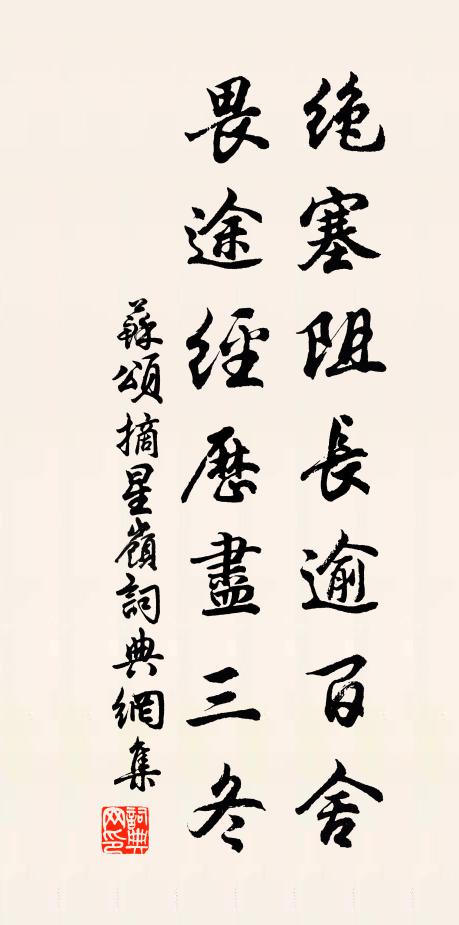 絶塞阻長逾百舍
畏途經歷盡三冬
蘇頌摘星嶺詞典網集
詞典網印